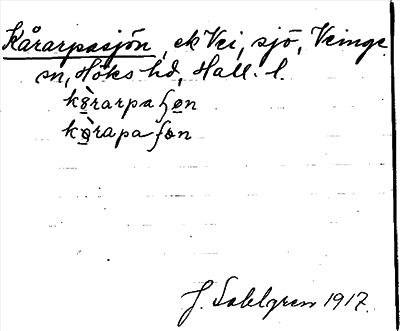 Kårarpasjön, ek Vei, sjö, Veinge
sn, Höks hd, Hall. l.
kòrarpaʃøn
kòrapaʃøn
J. Sahlgren 1917.